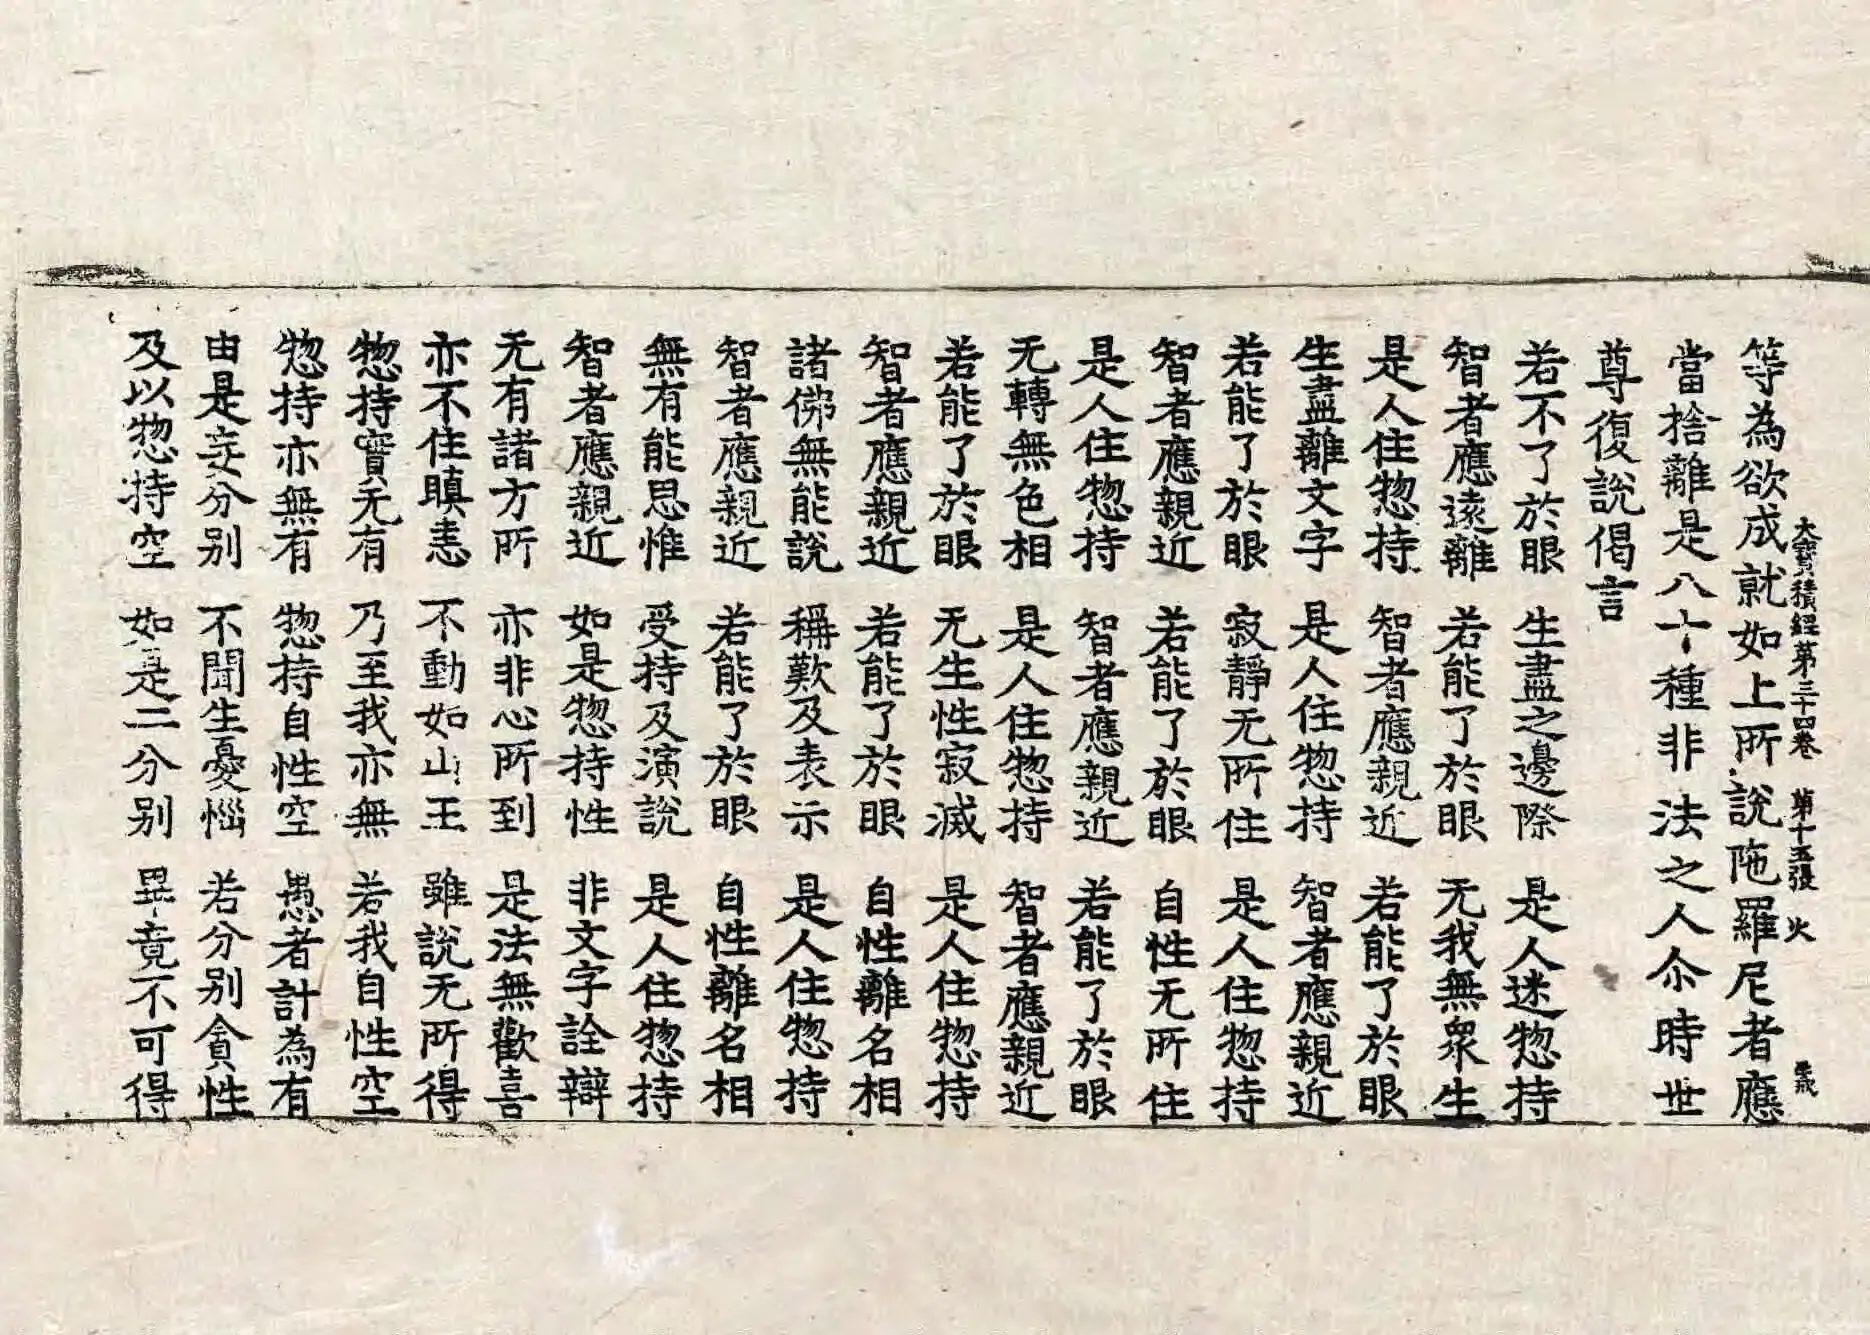 大寶積經第三十四卷 第十五張 火
等為欲成就如上所說陁羅尼者應
當捨離是八十種非法之人尒時世
尊復說偈言
若不了於眼 生盡之邊際 是人迷惣持
智者應遠離 若能了於眼 无我無衆生
是人住惣持 智者應親近 若能了於眼
生盡離文字 是人住惣持 智者應親近
若能了於眼 寂靜无所住 是人住惣持
智者應親近 若能了於眼 自性无所住
是人住惣持 智者應親近 若能了於眼
无轉無色相 是人住惣持 智者應親近
若能了於眼 无生性寂滅 是人住惣持
智者應親近 若能了於眼 自性離名相
諸佛無能說 稱歎及表示 是人住惣持
智者應親近 若能了於眼 自性離名相
無有能思惟 受持及演說 是人住惣持
智者應親近 如是惣持性 非文字詮辯
无有諸方所 亦非心所到 是法無歡喜
亦不住瞋恚 不動如山王 雖說无所得
惣持實无有 乃至我亦無 若我自性空
惣持亦無有 惣持自性空 愚者計為有
由是妄分別 不聞生憂惱 若分別貪性
及以惣持空 如是二分別 畢竟不可得